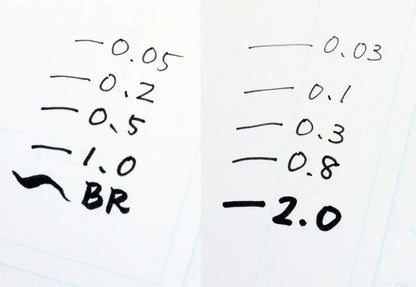 0.05
0.2
0.5
1.0
BR
0.03
0.1
0.3
0.8
2.0